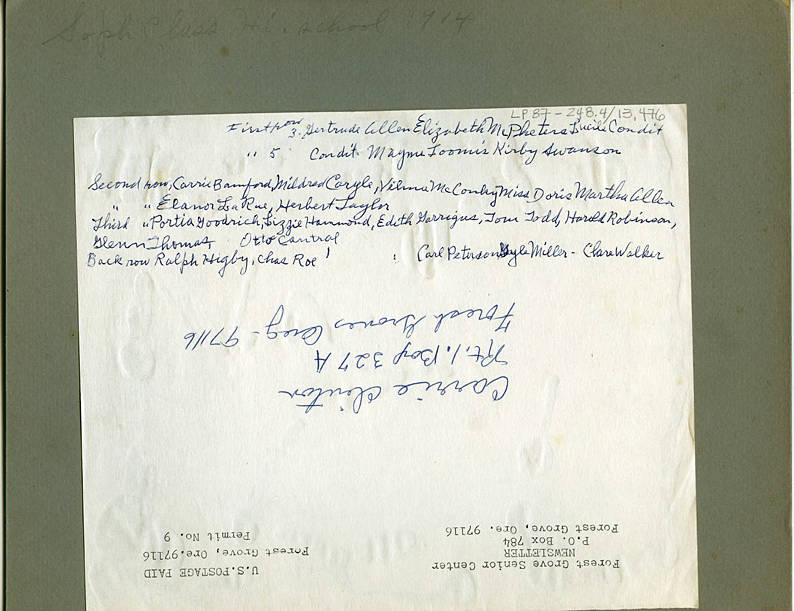 Soph Class Hi. school 1914
LP 87 - 248.4/13,476
First row 3. Gertrude Allen Elizabeth McPheters Lucile Condit
" 5. Condit. Mayme Loomis Kirby Swanson
Second row, Carrie Bamford, Mildred Caryle, Velma McConkey Miss Doris Martha Allen
" " Elanor LaRue, Herbert Taylor
Third " Portia Goodrich, Lizzie Hammond, Edith Garrigus, Tom Todd, Harold Robinson,
Glenn Thomas Otto Cantral
Back row Ralph Higby, Chas Roe Carl Peterson Gyle Miller - Clara Walker
Carrie Clinton
Rt. 1. Box 327 A
Forest Grove, Oreg - 97116
Forest Grove Senior Center
NEWSLETTER
P.O. Box 784
Forest Grove, Ore. 97116
U.S. POSTAGE PAID
Forest Grove, Ore. 97116
Permit No. 9